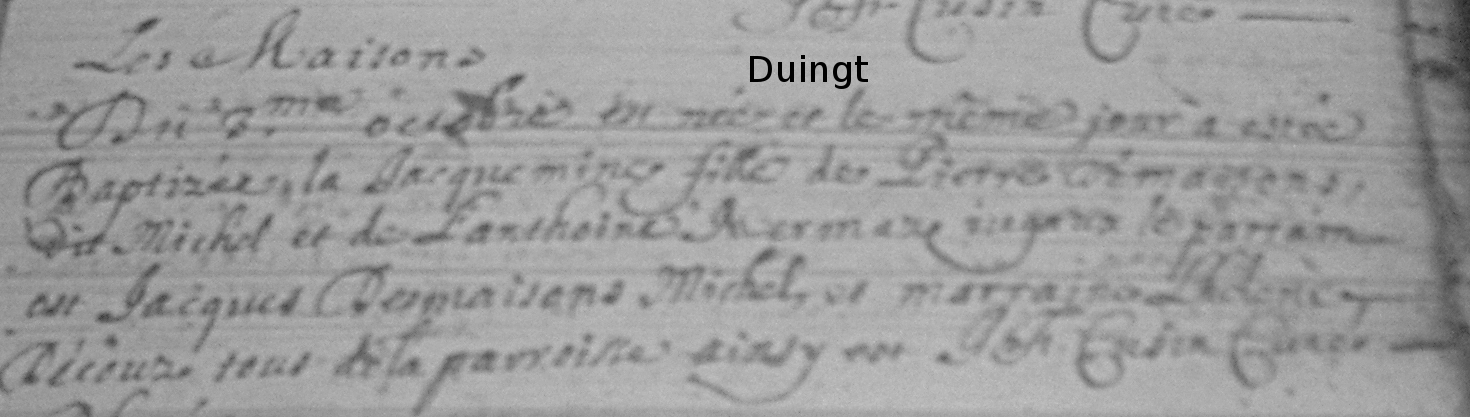 Joh Cusin Curé
Les Maisons
Duingt
Du 8.me octobre est née et le même jour a estée
Baptizée la Jacquemine fille de Pierre Demaisons,
dit Michel et de Lanthoine mariez le parrain
est Jacques Desmaisons Michel, et marraine
Découz tous de la parroisse ainsy est Joh Cusin Curé